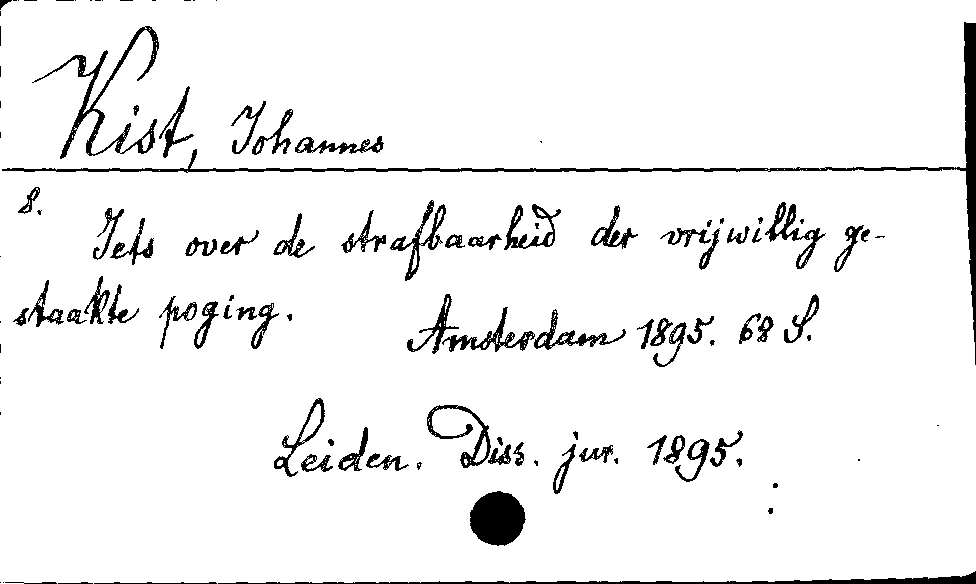 Kist, Johannes
8.
Iets over de strafbaarheid der vrijwillig ge-
staakte poging.
Amsterdam 1895. 68 S.
Leiden. Diss. jur. 1895.